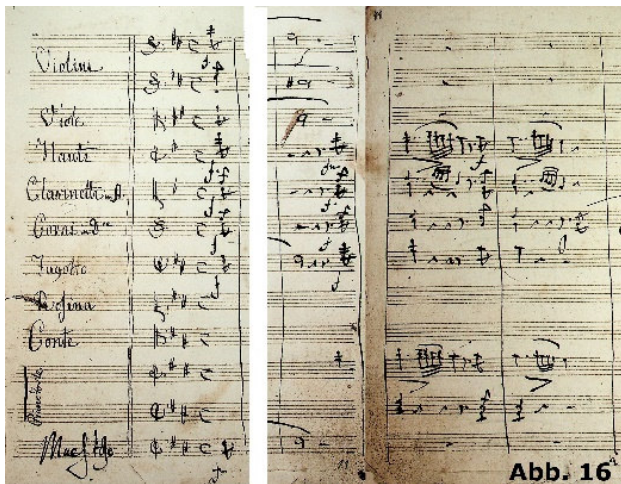 Violini
Viole
Flauti
Clarinetti in A
Corni in D
Fagotto
Rosina
Conte
Piano forte
Maestoso
Abb. 16